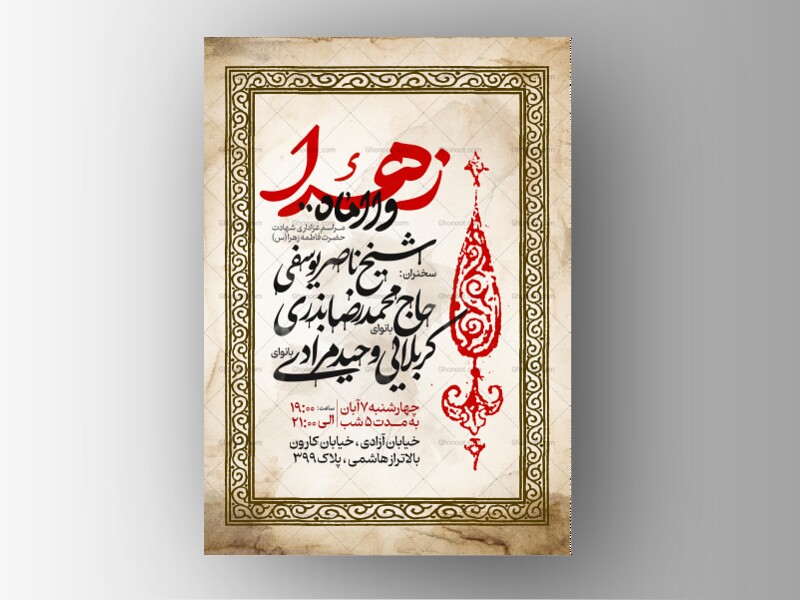 زهرا
واااماه..
مراسم عزاداری شهادت
حضرت فاطمه زهرا(س)
سخنران: شیخ ناصر یوسفی
بانوای حاج محمدرضا بذری
بانوای کربلایی وحید مرادی
چهارشنبه ۷ آبان | ساعت: ۱۹:۰۰
به مدت ۵ شب | الی ۲۱:۰۰
خیابان آزادی ، خیابان کارون
بالاتر از هاشمی ، پلاک ۳۹۹
Ghonoot.com